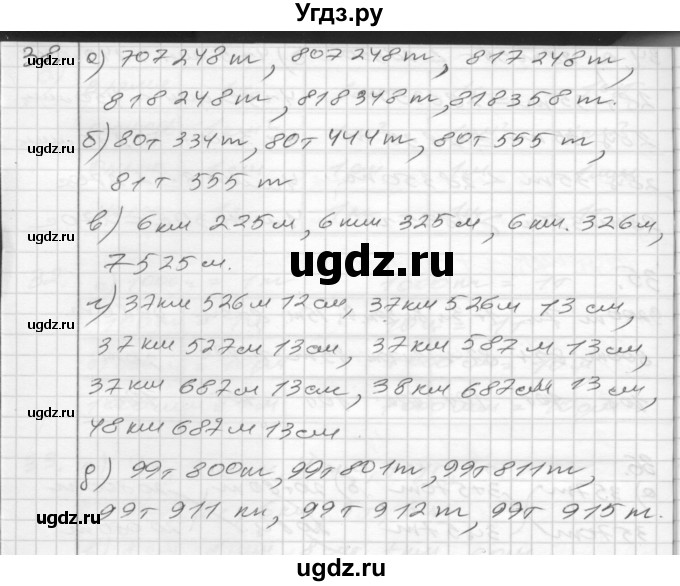 Угдз.ру
38 а) 707 248 т, 807 248 т, 817 248 т,
818 248 т, 818 348 т, 818 358 т.
б) 80т 334 т, 80т 444 т, 80т 555 т,
81 т 555 т
в) 6 км 225 м, 6 км 325 м, 6 км. 326 м,
7 525 м.
г) 37 км 526 м 12 см, 37 км 526 м 13 см,
37 км 527 м 13 см, 37 км 587 м 13 см,
37 км 687 м 13 см, 38 км 687 см 13 см,
48 км 687 м 13 см
д) 99т 800 т, 99т 801 т, 99т 811 т,
99т 911 пн, 99т 912 т, 99т 915 т.
ugdz.ru
ugdz.ru
ugdz.ru
ugdz.ru
ugdz.ru
ugdz.ru
ugdz.ru